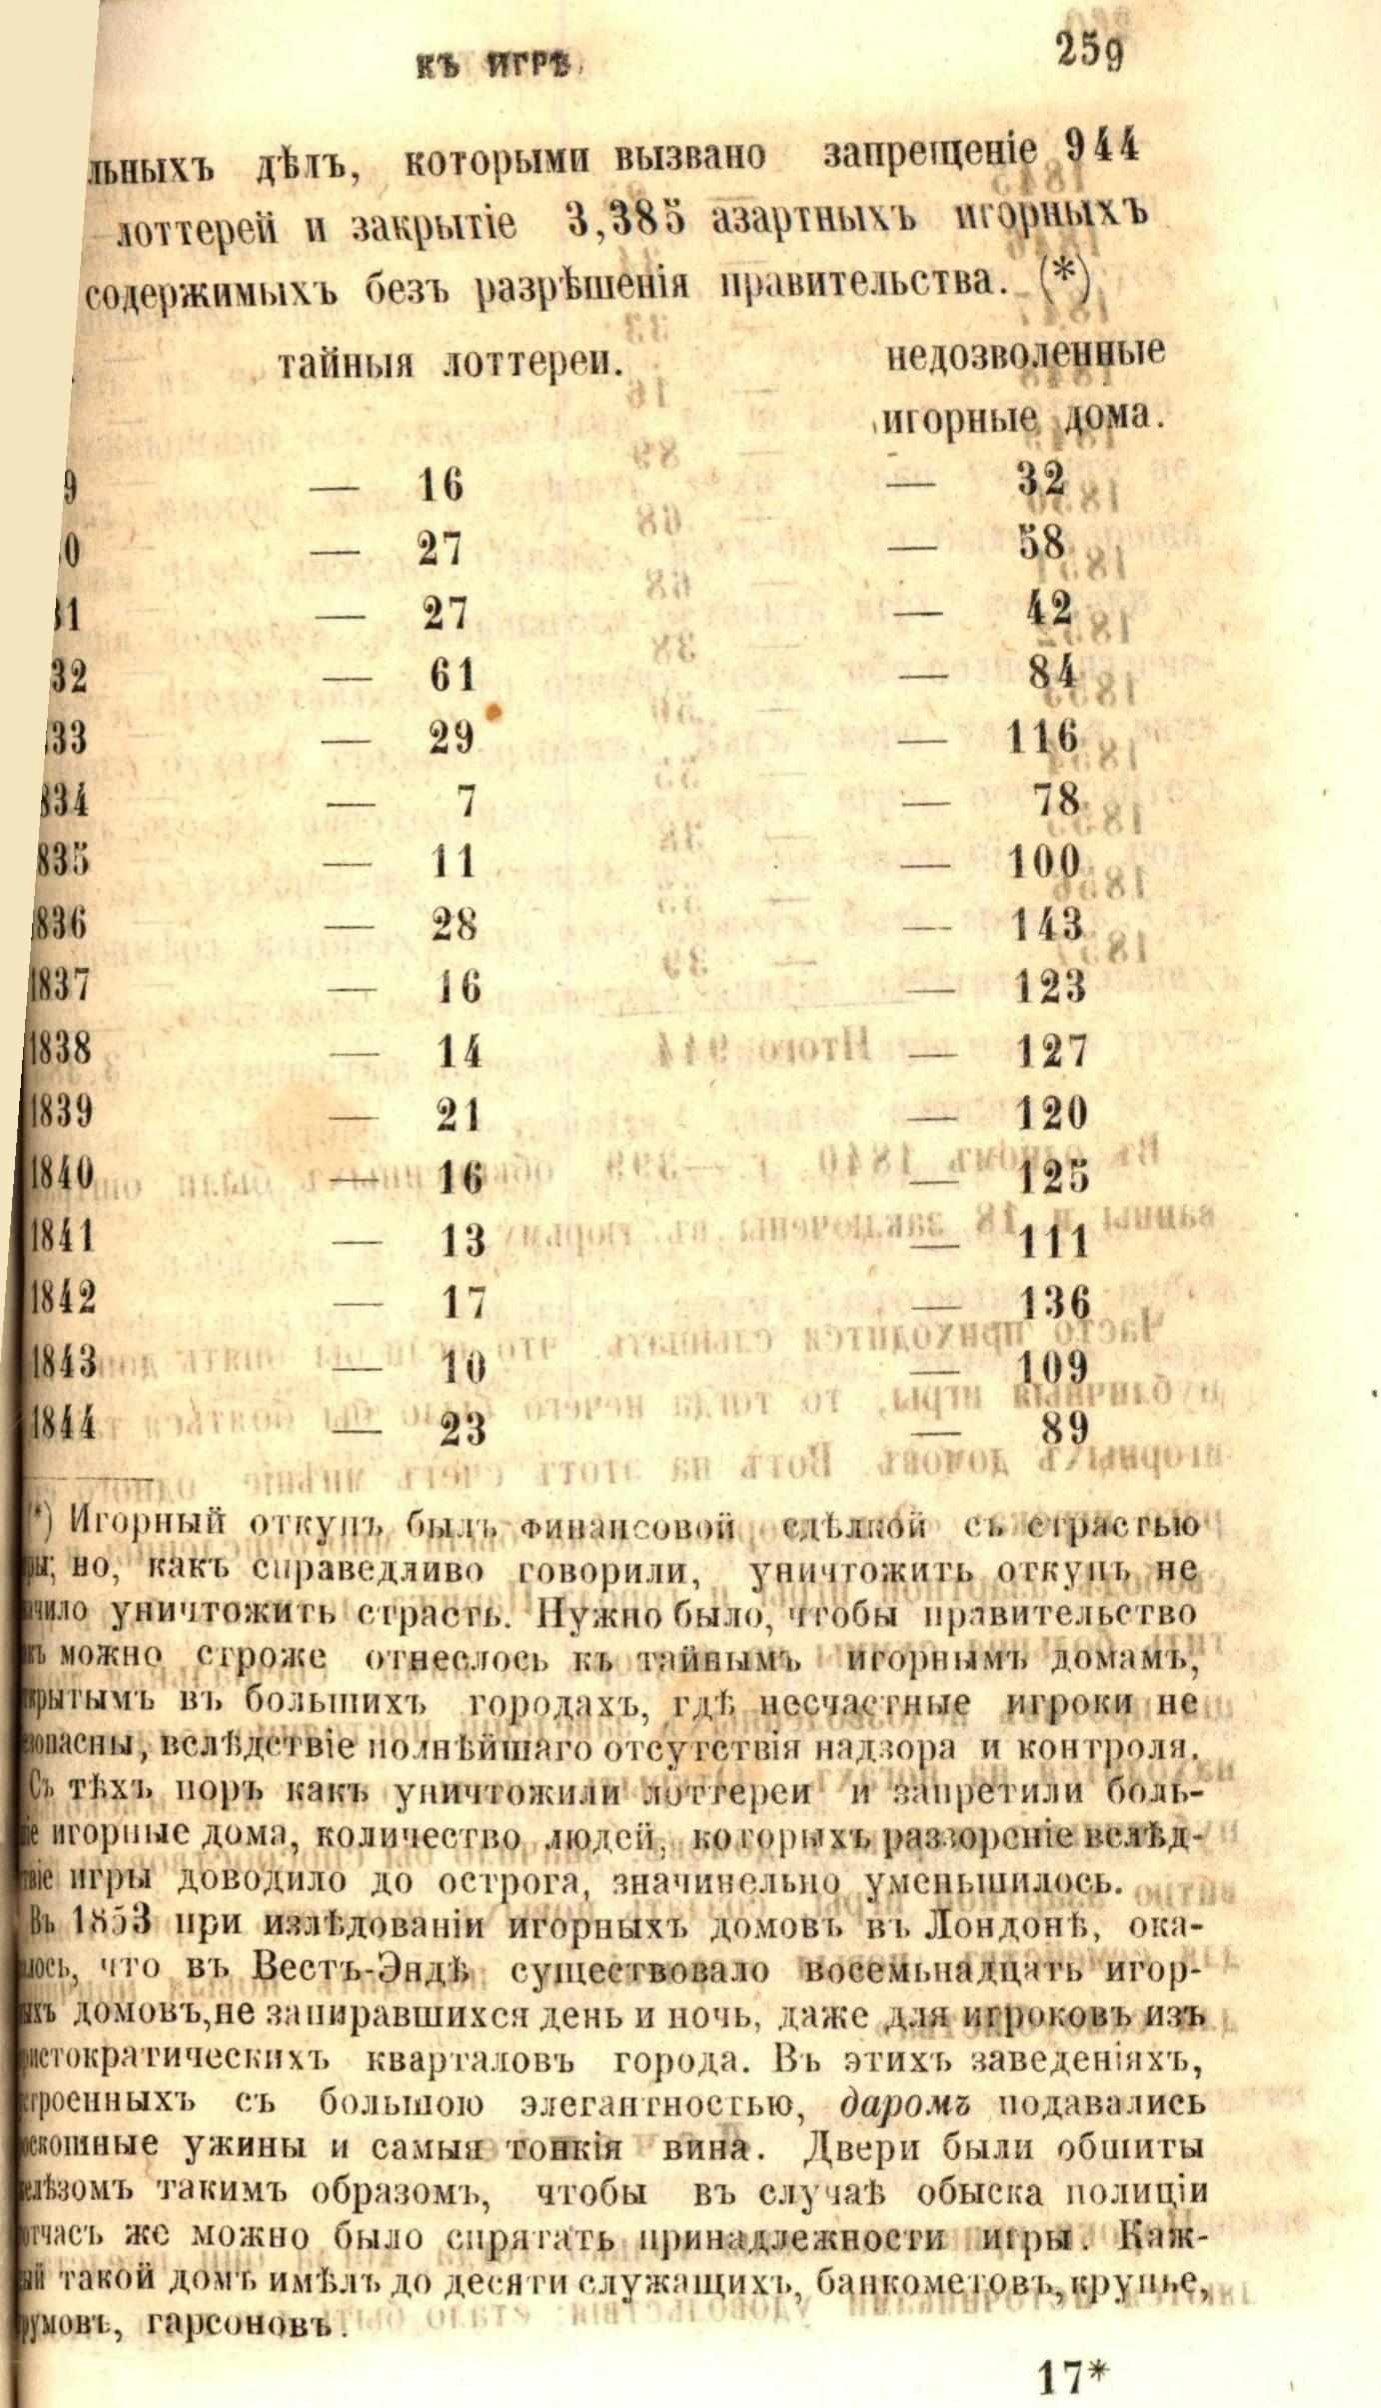 КЪ ИГРѢ. 259
льныхъ дѣлъ, которыми вызвано запрещеніе 944
лоттерей и закрытіе 3,385 азартныхъ игорныхъ
содержимыхъ безъ разрѣшенія правительства. (*)
тайныя лоттереи. недозволенные
игорные дома.
9 — 16 — 32
0 — 27 — 58
31 — 27 — 42
32 — 61 — 84
833 — 29 — 116
834 — 7 — 78
835 — 11 — 100
1836 — 28 — 143
1837 — 16 — 123
1838 — 14 — 127
1839 — 21 — 120
1840 — 16 — 125
1841 — 13 — 111
1842 — 17 — 136
1843 — 10 — 109
1844 — 23 — 89
(*) Игорный откупъ былъ финансовой сдѣлкой съ страстью
но, какъ справедливо говорили, уничтожить откупъ не
чило уничтожить страсть. Нужно было, чтобы правительство
можно строже отнеслось къ тайнымъ игорнымъ домамъ,
крытымъ въ большихъ городахъ, гдѣ несчастные игроки не
зопасны, вслѣдствіе полнѣйшаго отсутствія надзора и контроля.
Съ тѣхъ поръ какъ уничтожили лоттереи и запретили боль-
іе игорные дома, количество людей, которыхъ раззореніе вслѣд-
твіе игры доводило до острога, значинельно уменьшилось.
Въ 1853 при излѣдованіи игорныхъ домовъ въ Лондонѣ, ока-
лось, что въ Вестъ-Эндѣ существовало восемьнадцать игор-
ыхъ домовъ, не запиравшихся день и ночь, даже для игроковъ изъ
ристократическихъ кварталовъ города. Въ этихъ заведеніяхъ,
строенныхъ съ большою элегантностью, даромъ подавались
оскошные ужины и самыя тонкія вина. Двери были обшиты
елѣзомъ такимъ образомъ, чтобы въ случаѣ обыска полиціи
отчасъ же можно было спрятать принадлежности игры. Каж-
ый такой домъ имѣлъ до десяти служащихъ, банкометовъ, крупье,
румовъ, гарсоновъ.
17*